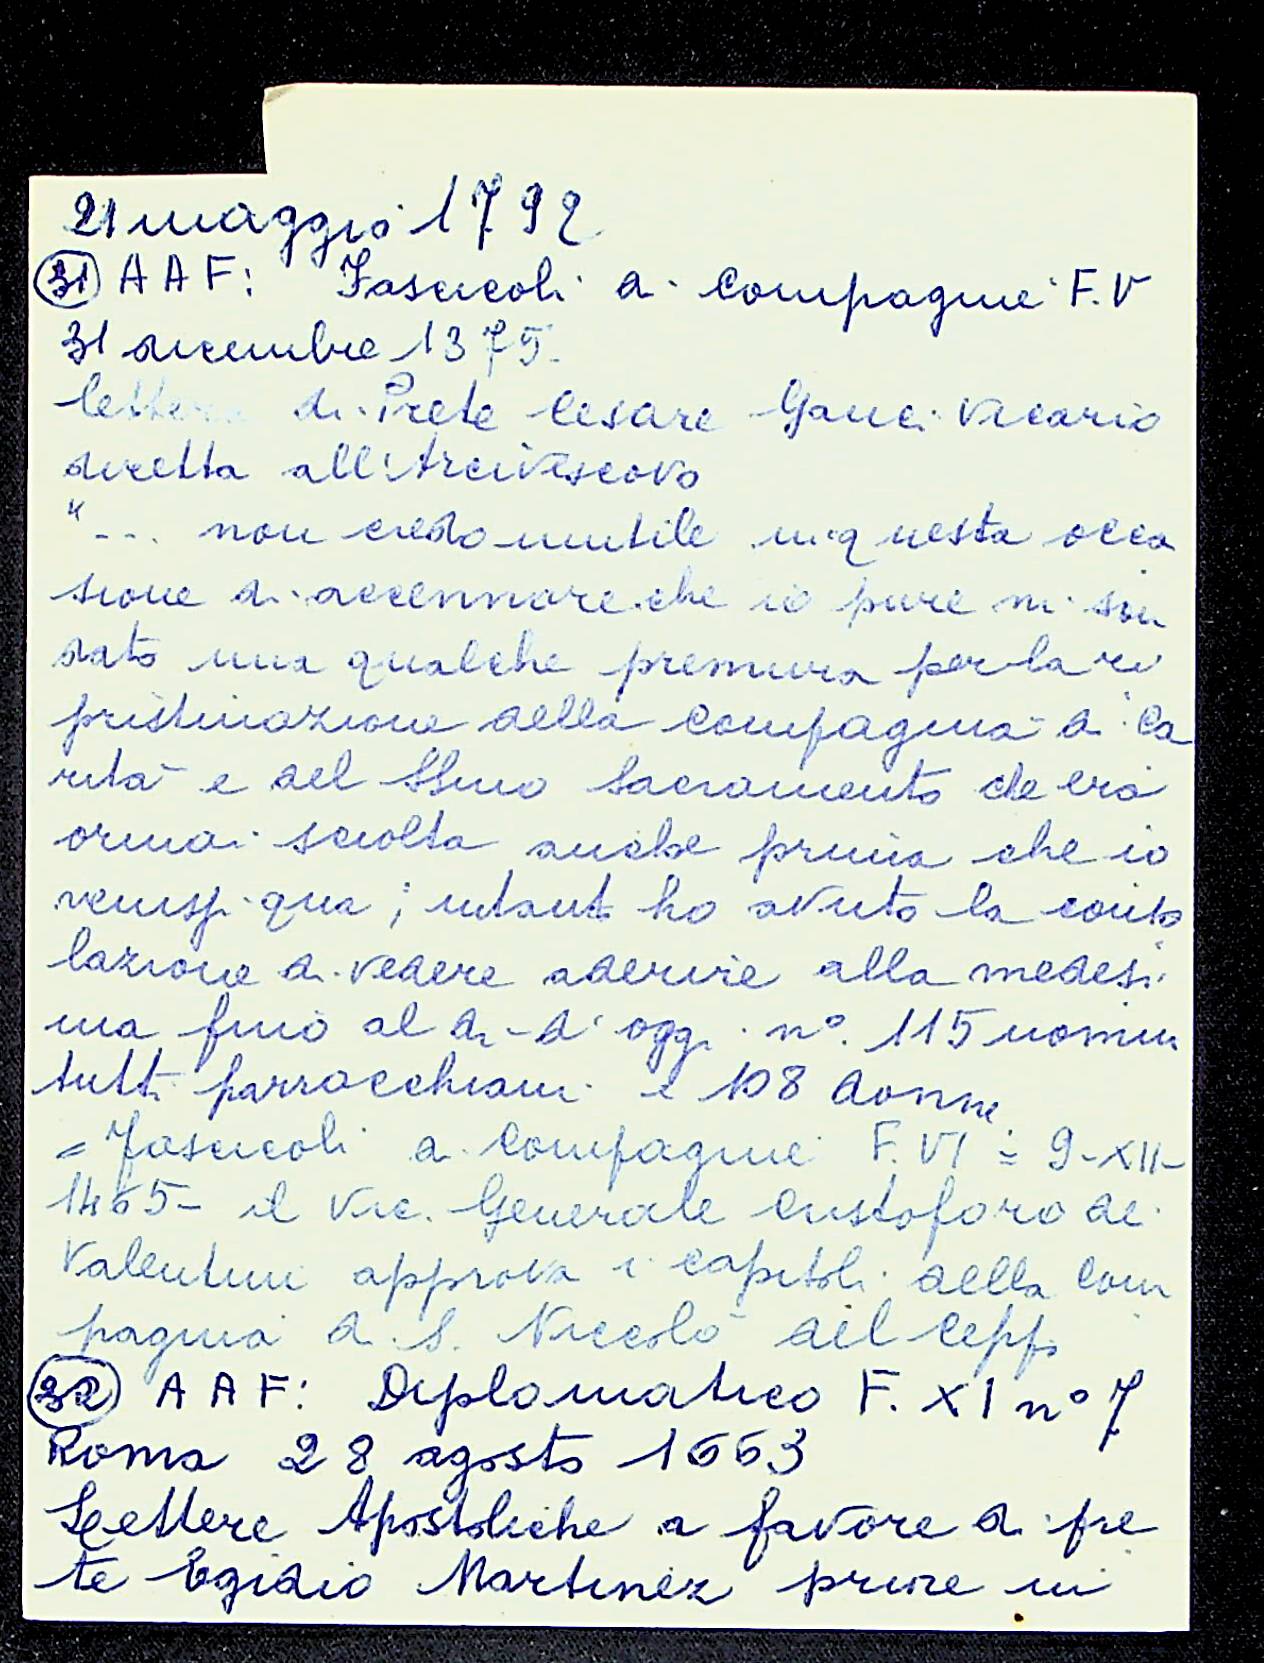 21 maggio 1792
31 AAF: Fascicoli di Compagnie F. V
31 dicembre 1375.
lettera di Prete Cesare Ganci Vicario
diretta all'Arcivescovo
"... non credo inutile in questa occa
sione di accennare che io pure mi son
dato una qualche premura per la ri
pristinazione della Compagnia di Ca
rità e del SSmo Sacramento che era
ormai sciolta anche prima che io
venissi qua; intanto ho avuto la conso
lazione di vedere aderire alla medesi
ma fino al dì d'oggi n°. 115 uomini
tutti parrocchiani e 108 donne
= Fascicoli di Compagnie F. VI = 9-XII-
1465- il Vic. Generale Cristoforo de
Valentini approva i capitoli della Com
pagnia di S. Niccolò del Ceppo
32 AAF: Diplomatico F. XI n° 7
Roma 28 agosto 1663
Lettere Apostoliche a favore di pre
te Egidio Martinez priore in